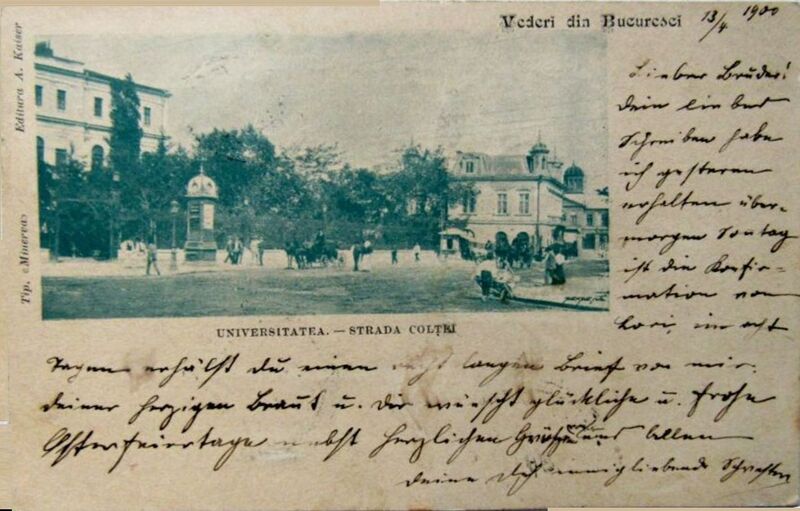 Vederi din Bucuresci
13/4 1900
Editura A. Kaiser
Tip. «Minerva»
Lieber Bruder!
Dein liebes
Schreiben habe
ich gestern
erhalten über-
morgen Sontag
ist die Konfir-
mation von
Lori, in acht
UNIVERSITATEA. — STRADA COLȚEI
Tagen erhälst du einen recht langen Brief von mir.
Deiner herzigen Braut u. Dir wünscht glückliche u. frohe
Osterfeiertage nebst herzlichen Grüßen uns Allen
Deine Dich innigliebende Schwester